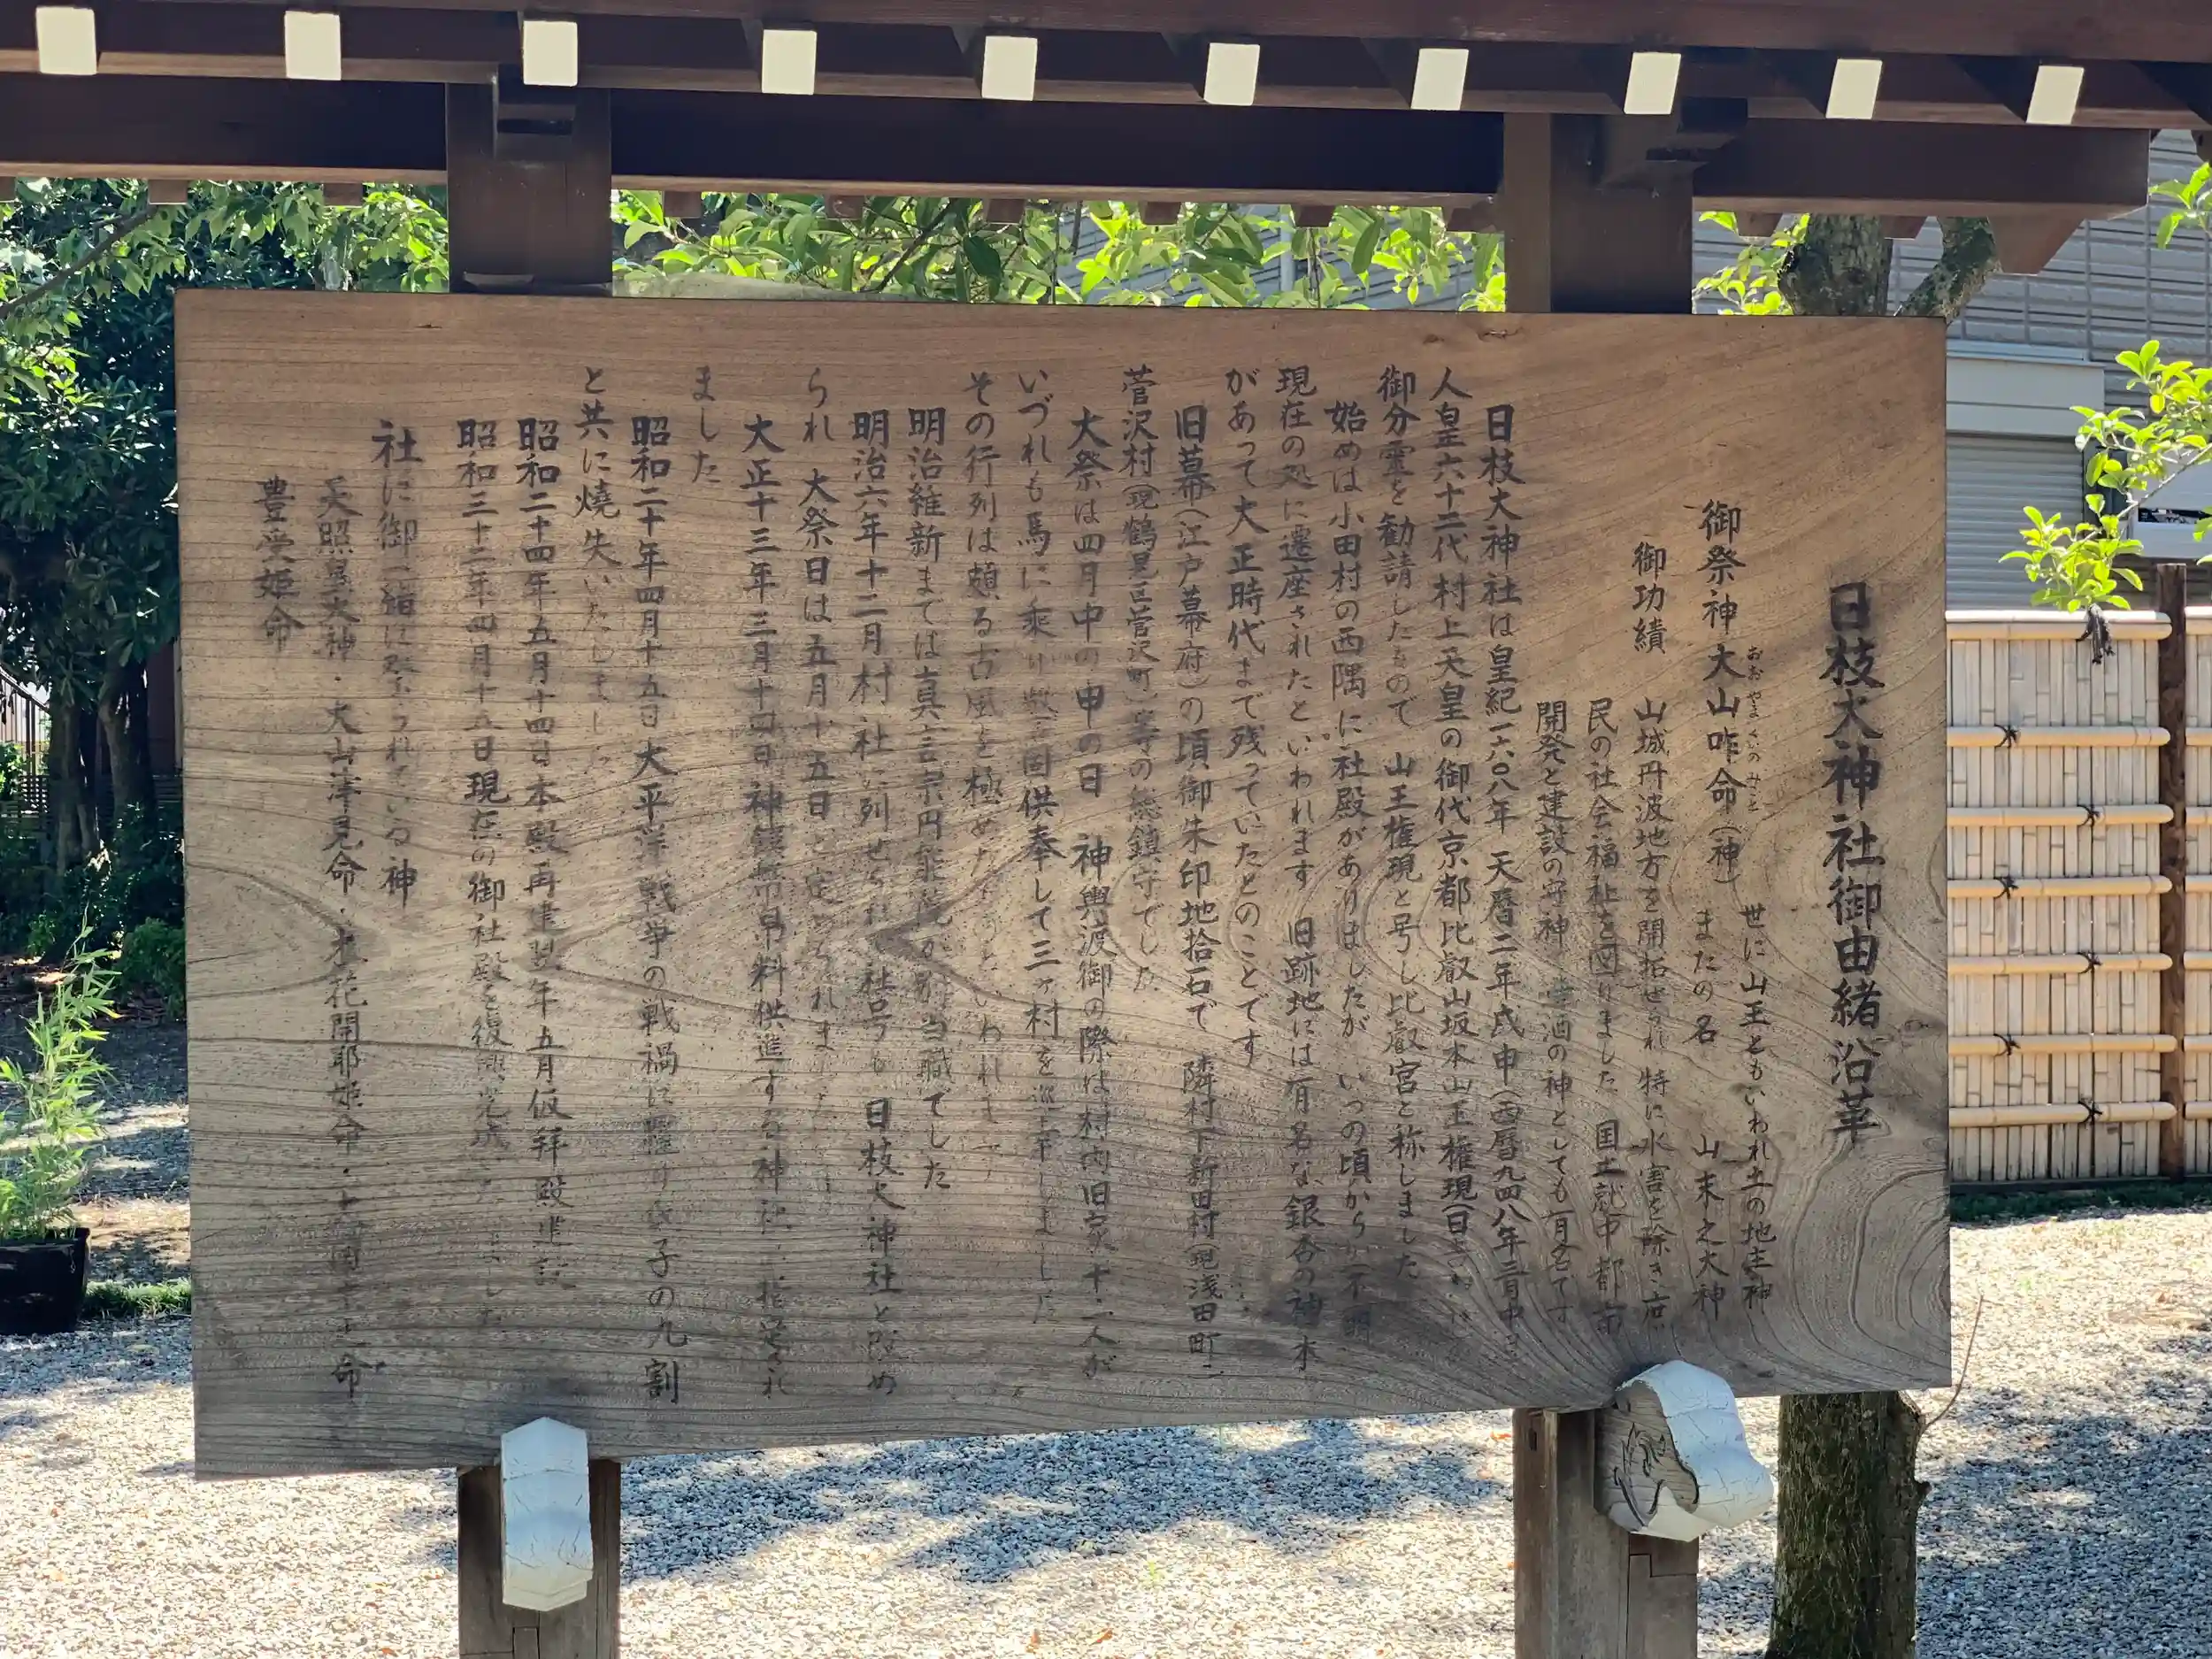 日枝大神社御由緒沿革
世に山王ともいわれ土の地主神
おおやまくいのみこと
御祭神 大山咋命(神) またの名 山末之大神
御功績 山城丹波地方を開拓せられ 特に水害を除き庶
民の社会福祉を図りました 国土就中 都市
開発と建設の守神 酒の神としても有名です
日枝大神社は皇紀一六〇八年 天暦二年戊申(西暦九四八年三月中
人皇六十二代村上天皇の御代京都比叡山坂本山王権現(日
御分霊を勧請したもので 山王権現と号し比叡宮と称しました
始めは小田村の西隅に社殿がありましたが いつの頃からか不明
現在の処に遷座されたといわれます 旧跡地には有名な銀杏の神木
があって大正時代まで残っていたとのことです
旧幕(江戸幕府)の頃御朱印地拾石で 隣村下新田村(現浅田町)
菅沢村(現鶴見区菅沢町)等の総鎮守でした
大祭は四月中の申の日 神輿渡御の際は村内旧家十二人が
いづれも馬に乗り 固供奉して三ヶ村を巡幸しました
その行列は頗る古風を極めたものといわれます
明治維新までは真言宗円能院が別当職でした
明治六年十二月村社に列せられ 社号も 日枝大神社と改め
られ 大祭日は五月十五日と定められました
大正十三年三月十四日神饌幣帛料供進する神社に指定され
ました
昭和二十年四月十五日大平洋戦争の戦禍に罹り氏子の九割
と共に焼失いたしました
昭和二十四年五月十四日本殿再建翌年五月仮拝殿建設
昭和三十二年四月十五日現在の御社殿を復興完成しました
社に御一緒に祭られている神
天照皇大神・大山津見命・木花開耶姫命・ 命
豊受姫命